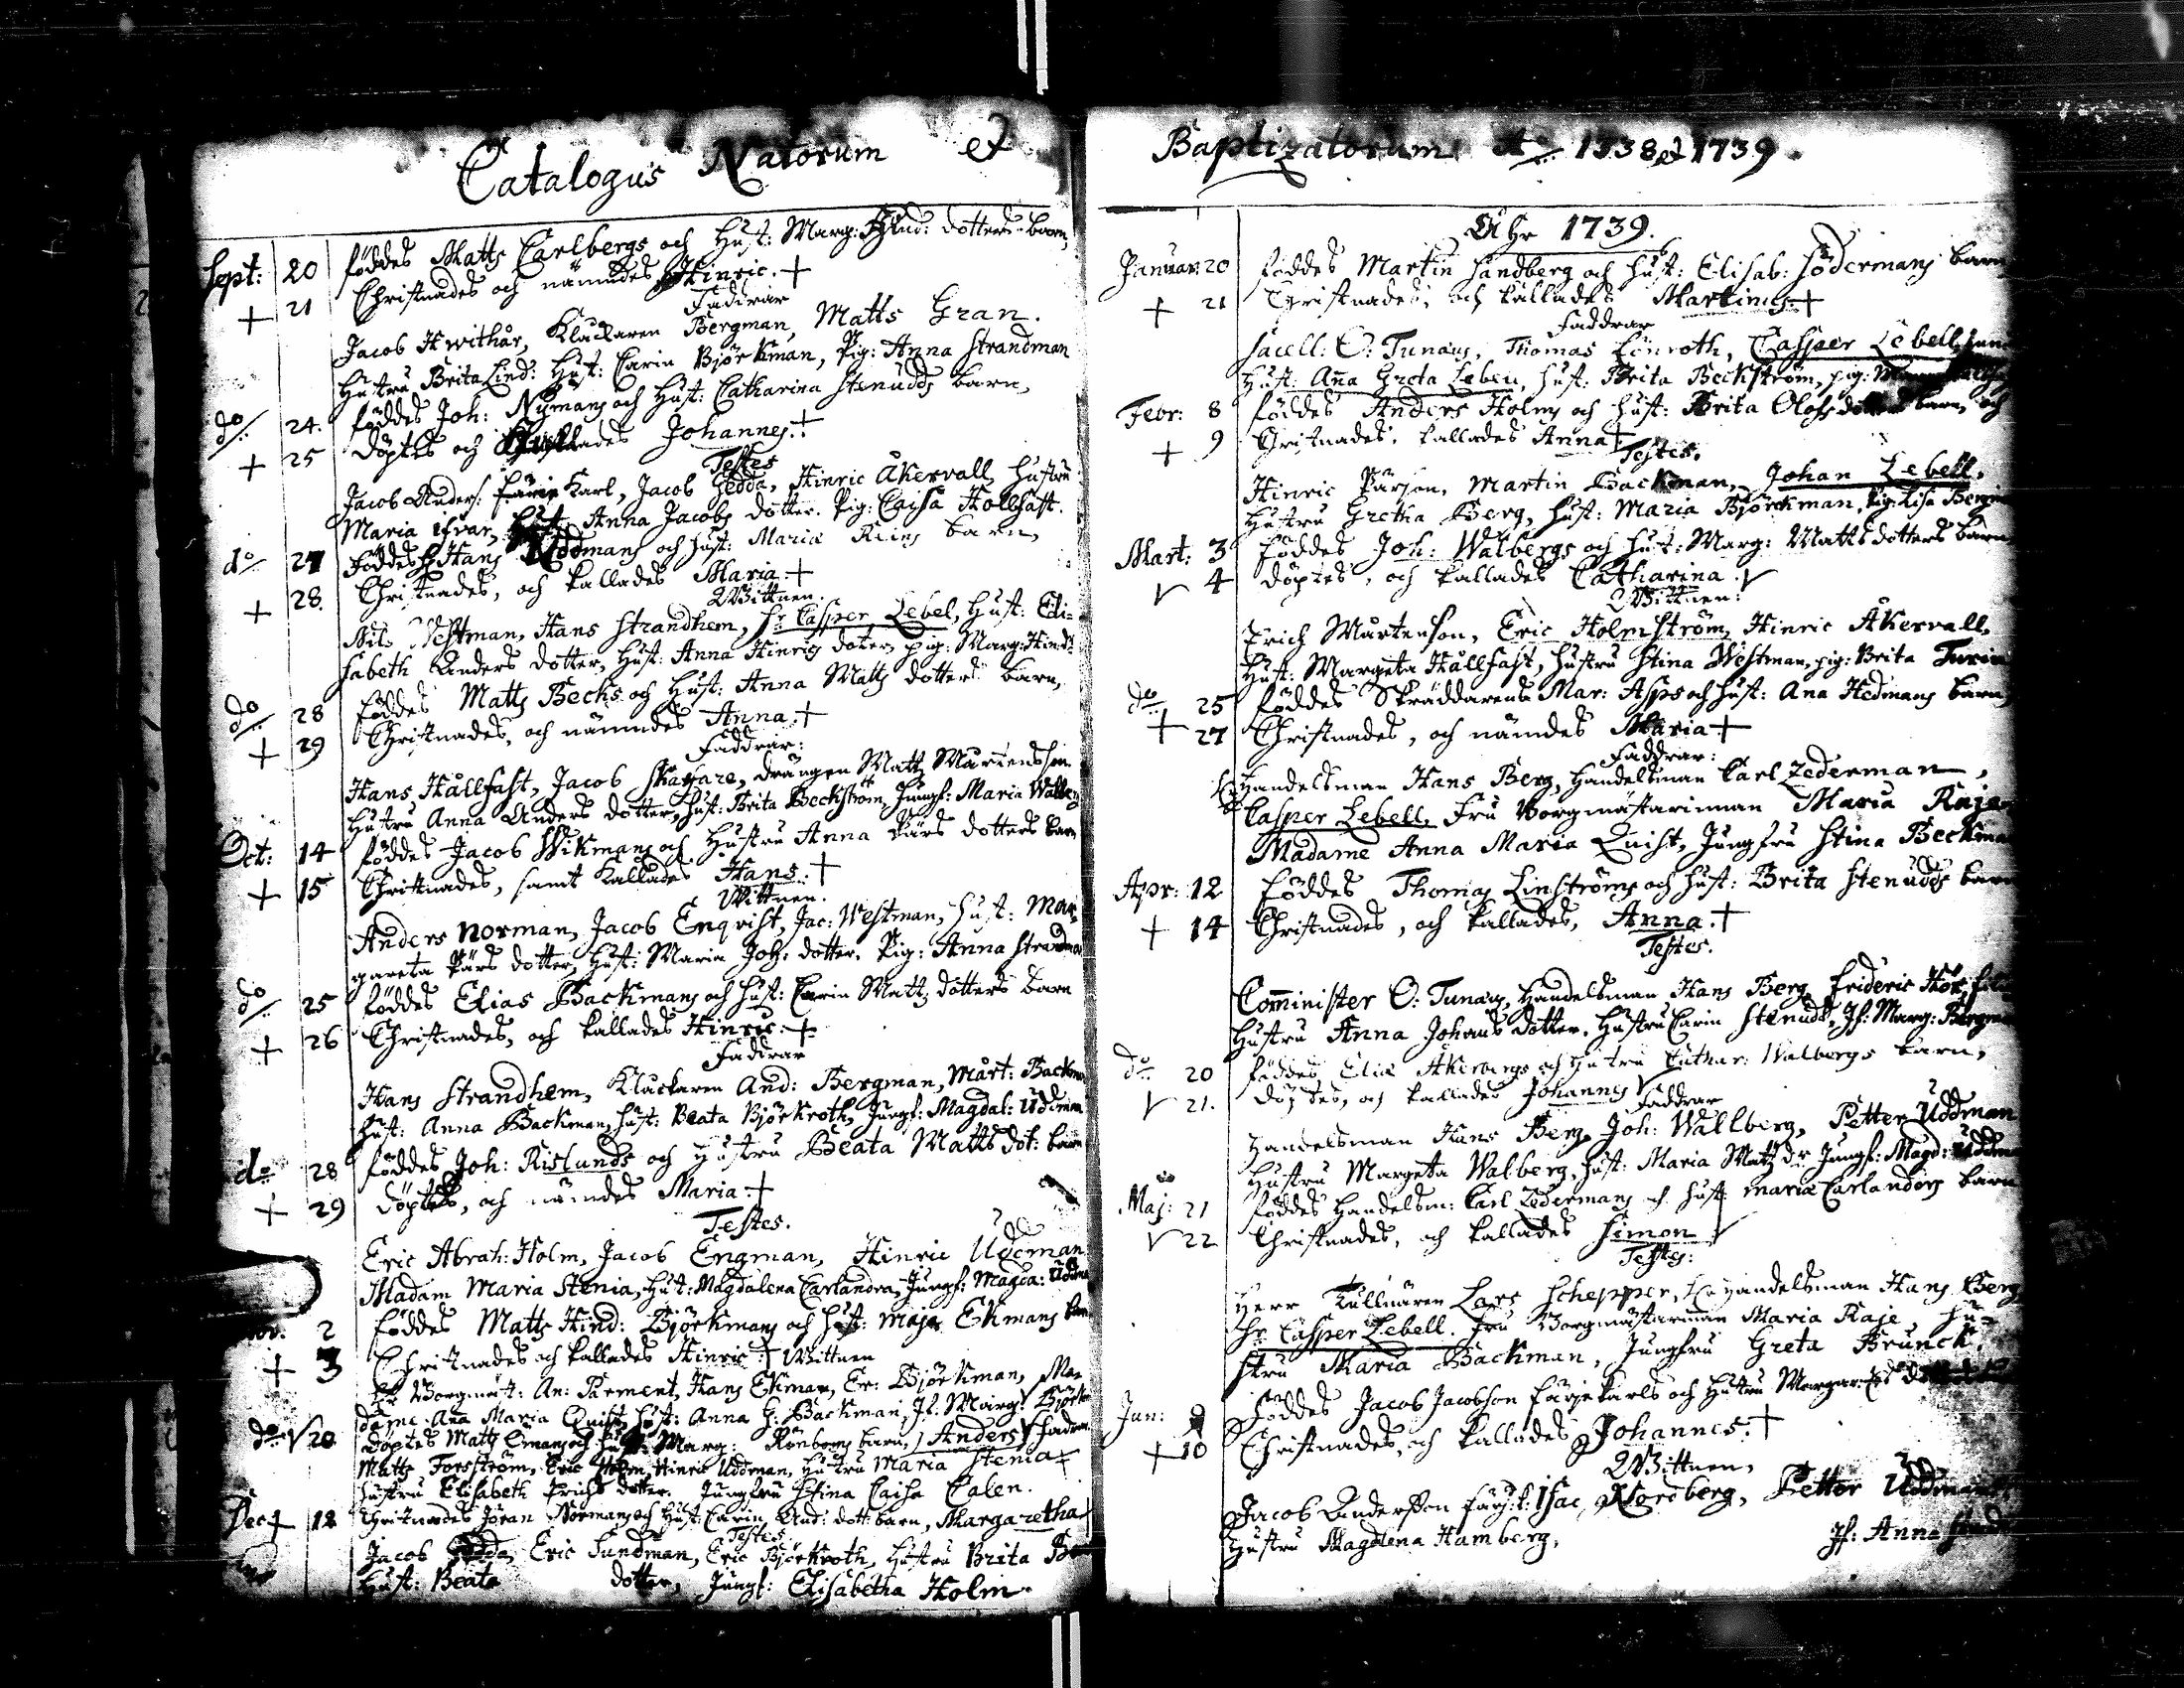 Catalogus Natorum et
Sept: 20 föddes Matts Carlbergs och Hust: Marg: dotters barn,
+ 21 Christnades och nämndes Hinric. +
Faddrar
Jacob Hwithår, Klåckaren Bergman, Matts Gran.
Hustru Brita Lind: Hust: Carin Björkman, Pig: Anna Strandman
do 24. föddes Joh: Nymans och Hust: Catharina Stenudds barn,
+ 25 döptes och kallades Johannes. +
Testes
Jacob Anders: Färie Karl, Jacob Gedda, Hinric Åkervall, Hustru
Maria Ifvar, Hust: Anna Jacobs dotter. Pig: Caisa Hollfast.
do 27 föddes Hans Uddmans och Hust: Maria barn,
+ 28. Christnades, och kallades Maria +
Wittnen.
Nils Westman, Hans Strandhem, Hr Casper Lebel, Hust: Eli-
sabeth Anders dotter, Hust: Anna Hinrics doter, pig: Marg: Hinds
do 28 föddes Matts Becks och Hust: Anna Matts dotters barn,
+ 29 Christnades, och nämndes Anna +
Faddrar:
Hans Hållfast, Jacob Skaffare, drängen Matts Mårtensson
Hustru Anna Anders dotter, Hust: Brita Beckström, Jungf: Maria Walberg
Oct: 14 föddes Jacob Wikmans och Hustru Anna Pärs dotters barn
+ 15 Christnades, samt kallades Hans. +
Wittnen.
Anders Norman, Jacob Enqvist, Jac: Westman, Hust: Mar-
gareta Pärs dotter, Hust: Maria Joh: dotter. Pig: Anna Strandman
do 25 föddes Elias Backmans och Hust: Carin Matts dotters barn
+ 26 Christnades, och kallades Hinric. +
Faddrar
Hans Strandhem, Klåckaren And: Bergman, Mårt: Backman
Hust: Anna Backman, Hust: Beata Björkroth, Jungf: Magdal: Uddman
do 28 föddes Joh: Rislunds och Hustru Beata Matts dot: barn
+ 29 döptes, och nämdes Maria +
Testes.
Eric Abrah: Holm, Jacob Engman, Hinric Uddman
Madam Maria Stenia, Hust: Magdalena Carlandra, Jungf: Magda: Uddman
2 föddes Matts Hind: Björkmans och Hust: Maja Ekmans barn
+ 3 Christnades och kallades Hinric + Wittnen
Hr Borgmest: An: Parment, Hans Ekman, Er: Björkman, Ma-
dame Anna Maria Quist, Hust: Anna G: Backman, Jf: Marg: Björkm
do √ 20 döptes Matts Emans och Hust: Marg: Rönboms barn, Anders √ Fadrar
Matts Forsström, Eric Holm, Hinric Uddman, Hustru Maria Stenia
Hustru Elisabeth Erichs dotter. Jungfru Stina Caisa Calen.
Dec + 12 Christnades Jöran Normans och Hust: Carin And: dott: barn, Margaretha +
Testes.
Jacob Gedda, Eric Sundman, Eric Björkroth, Hustru Brita
Hust: Beata dotter, Jungf: Elisabetha Holm
Baptizatorum Ao 1738 et 1739.
Åhr 1739.
Januar: 20 föddes Martin Sandberg och Hust: Elisab: Södermans barn
+ 21 Christnades, och kallades Martinus +
Faddrar
Sacell: O: Tunæus, Thomas Lönroth, Casper Lebell
Hust: Anna Greta Lebell, Hust: Brita Beckström, pig:
Febr: 8 föddes Anders Holms och Hust: Brita Olofs dotters barn, och
+ 9 Christnades, kallades Anna +
Testes.
Hinric Pärson, Martin Backman, Johan Lebell,
Hustru Gretha Berg, Hust: Maria Björckman, Pig: Lisa Bergm
Mart: 3 föddes Joh: Walbergs och Hust: Marg: Matts dotters barn
√ 4 döptes, och kallades Catharina √
Wittnen:
Erich Mårtenson, Eric Holmström, Hinric Åkervall,
Hust: Margeta Hållfast, Hustru Stina Westman, pig: Brita
do 25 föddes Skräddarens Mar: Asps och Hust: Ana Hedmans barn,
+ 27 Christnades, och nämdes Maria +
Faddrar:
Handelsman Hans Berg, Handelsman Carl Zederman,
Casper Lebell, Fru Borgmästarinnan Maria Raje,
Madame Anna Maria Quist, Jungfru Stina Beckman
Apr: 12 föddes Thomas Linströms och Hust: Brita Stenudds barn
+ 14 Christnades, och kallades, Anna. +
Testes.
Comminister O: Tunæus, Handelsman Hans Berg, Frideric
Hustru Anna Johans dotter. Hustru Carin Stenudd, Jf: Marg: Bergman
do 20 föddes Eliæ Åkerbergs och Hustru Cathar: Walbergs barn,
√ 21. döptes, och kallades Johannes √
Faddrar
Handelsman Hans Berg, Joh: Wallberg, Petter Uddman
Hustru Margeta Walberg, Hust: Maria Matts dr Jungf: Magd: Uddman
Maj: 21 föddes Handelsm: Carl Zedermans och Hust: Maria Carlanders barn
√ 22 Christnades, och kallades Simon √
Testes:
Herr Tullnären Lars Schepper, Handelsman Hans Berg
Hr Casper Lebell. Fru Borgmästarinnan Maria Raje, Hu-
stru Maria Backman, Jungfru Greta Brunck.
Jun: 9 föddes Jacob Jacobson Färjekarls och Hustru Margar:
+ 10 Christnades, och kallades Johannes. +
Wittnen,
Jacob Andersson Färj: k: Isac Noreberg, Petter Uddman
Hustru Magdlena Hamberg, Jf: Anna